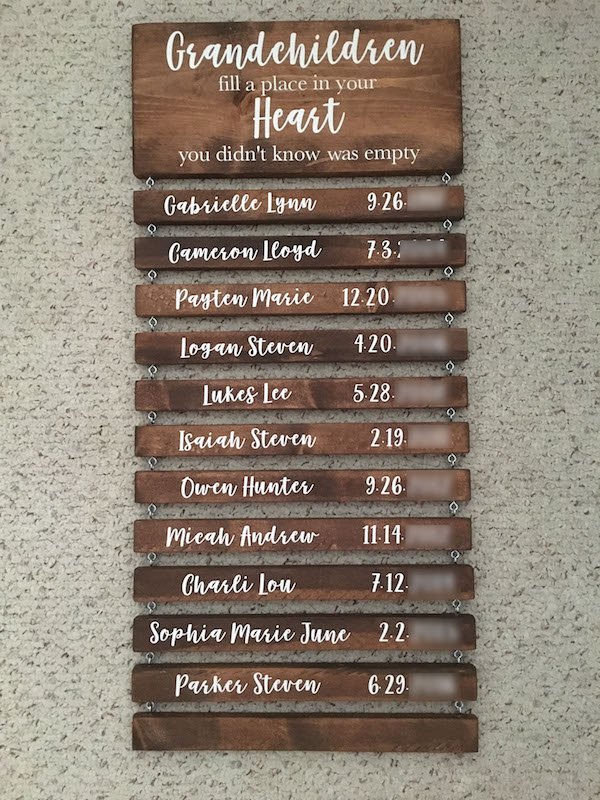 Grandchildren
fill a place in your
Heart
you didn't know was empty
Gabrielle Lynn 9.26.
Cameron Lloyd 7.3.
Payten Marie 12.20.
Logan Steven 4.20.
Lukes Lee 5.28.
Isaiah Steven 2.19.
Owen Hunter 9.26.
Micah Andrew 11.14.
Charli Lou 7.12.
Sophia Marie June 2.2.
Parker Steven 6.29.